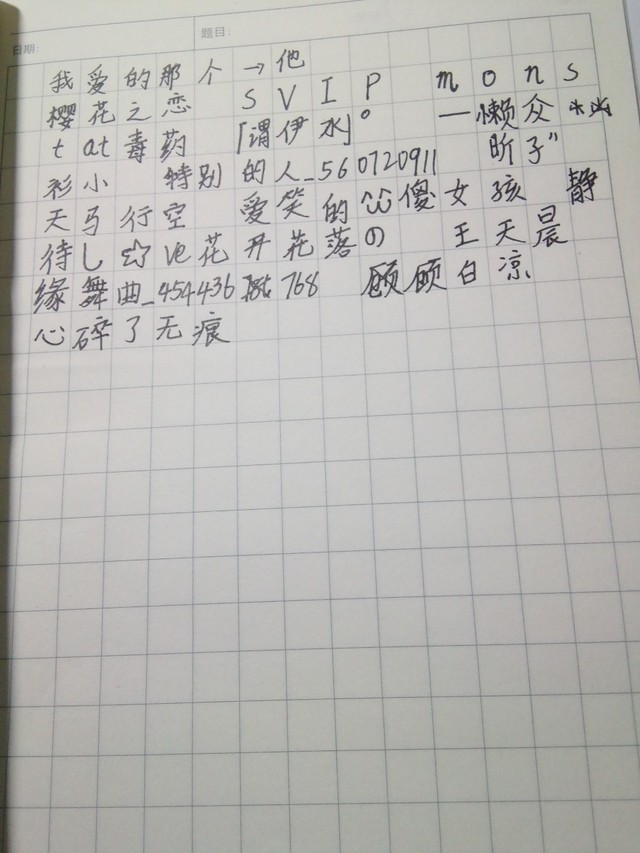 日期: 题目:
我爱的那个→他
樱花之恋 SVIP mons
tat毒药 「谓伊水」° 一懒众
衫小 特别的人_560720911 昕子"
天马行空 爱笑的 傻女孩 静
待し☆ve花开花落の 王天晨
缘舞曲_454436 768 顾颀白凉
心碎了无痕